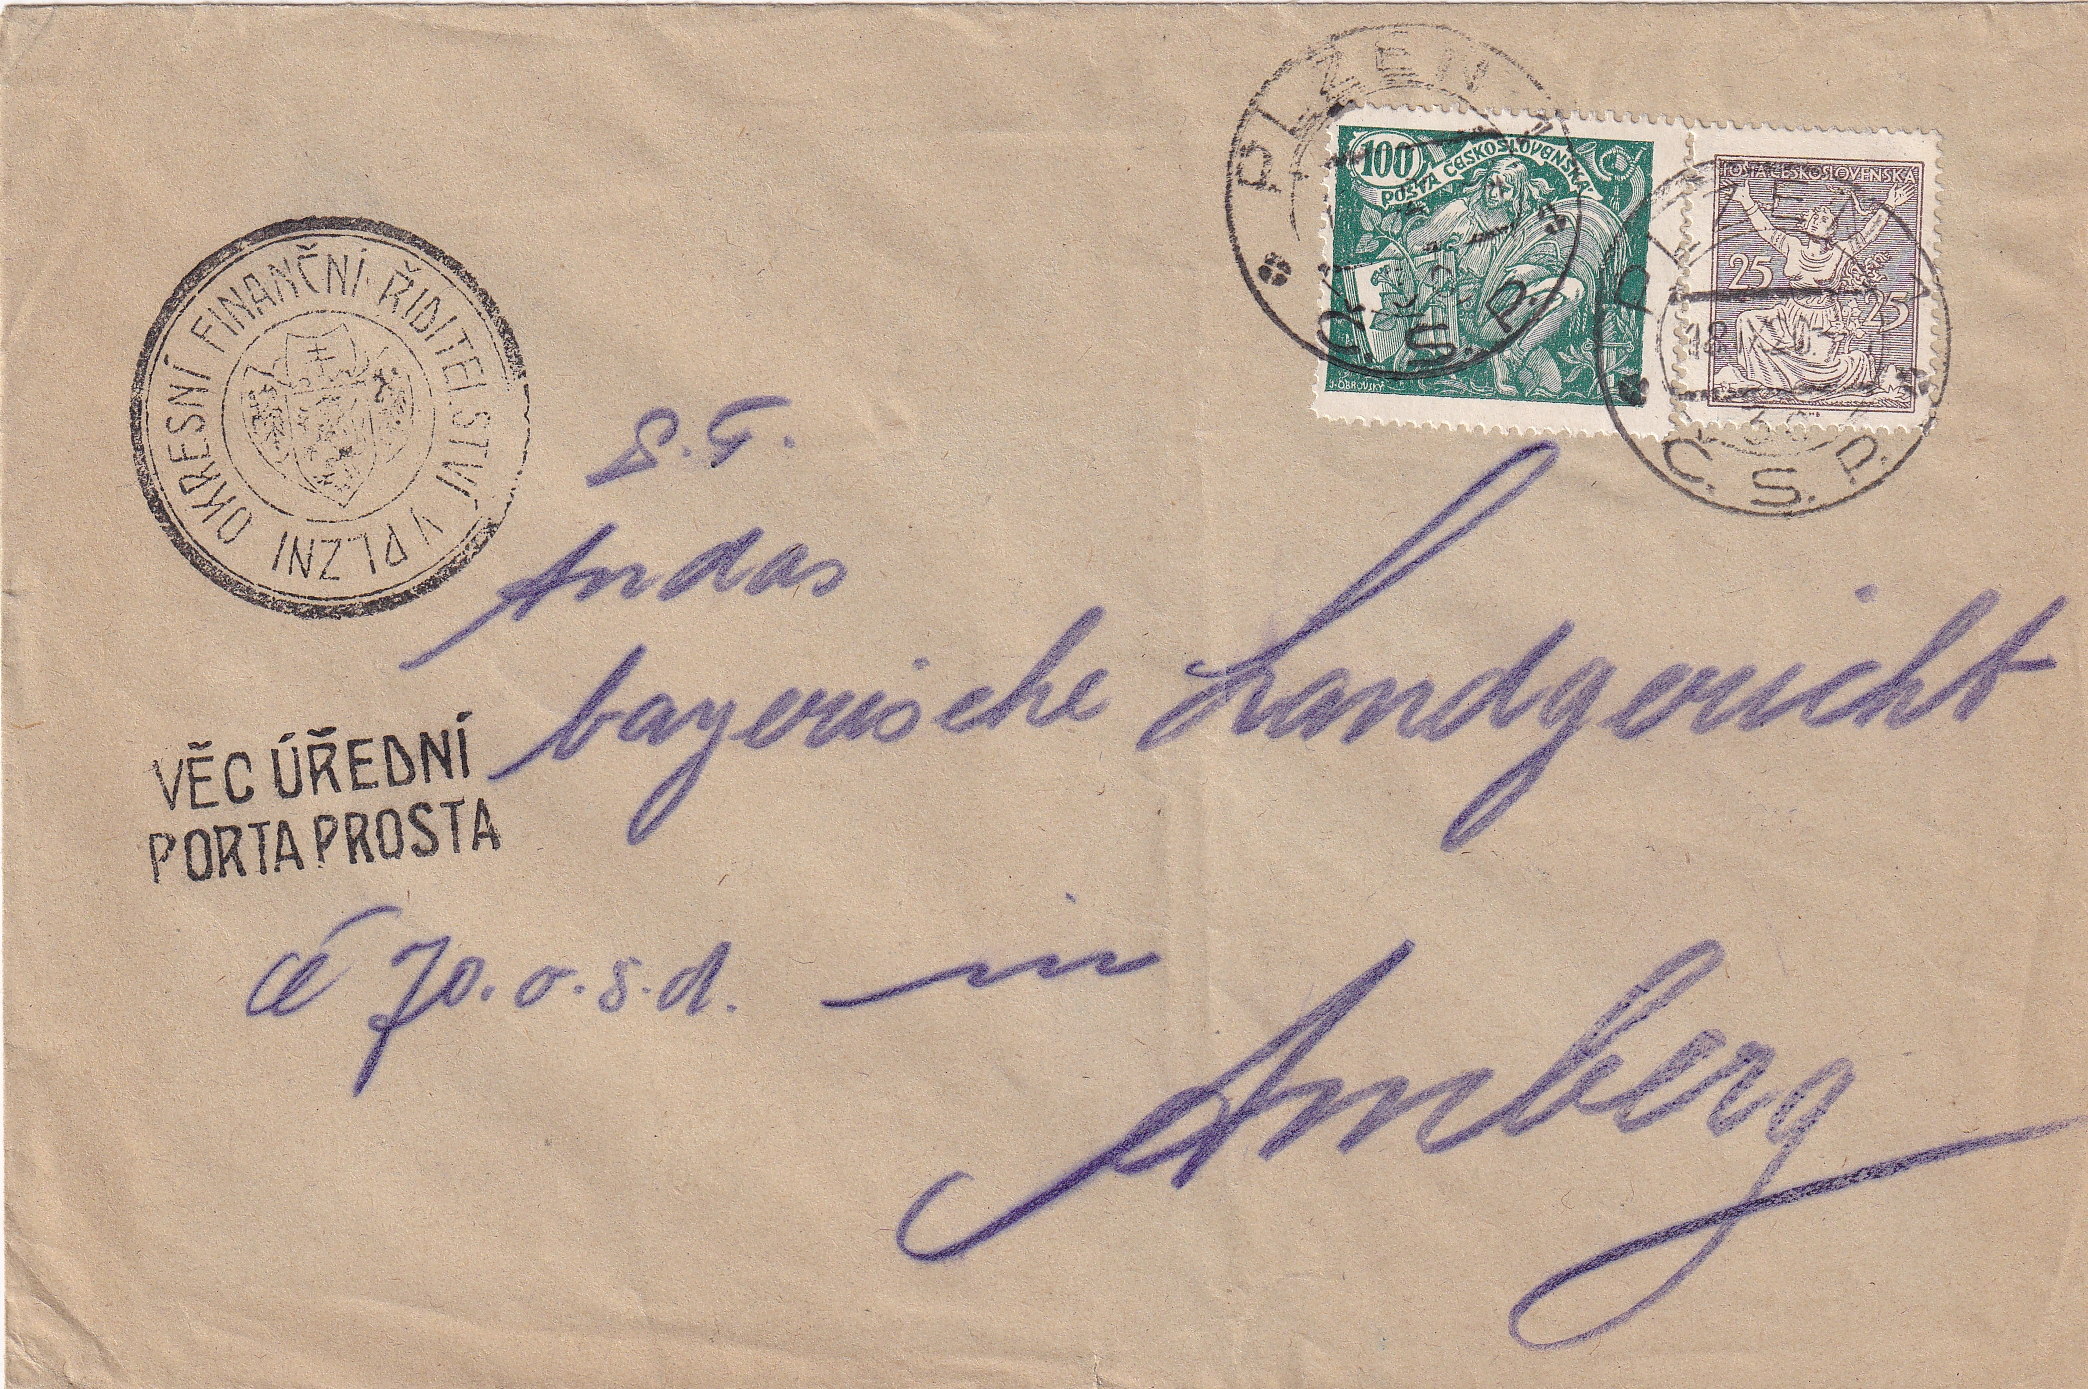 PLZEŇ
Č.S.P.
100
POŠTA ČESKOSLOVENSKÁ
J. OBROVSKÝ
POŠTA ČESKOSLOVENSKÁ
25 25
PLZEŇ
Č.S.P.
OKRESNÍ FINANČNÍ ŘIDITELSTVÍ V PLZNI
An das
bayerische Landgericht
VĚC ÚŘEDNÍ
PORTA PROSTA
in
Amberg